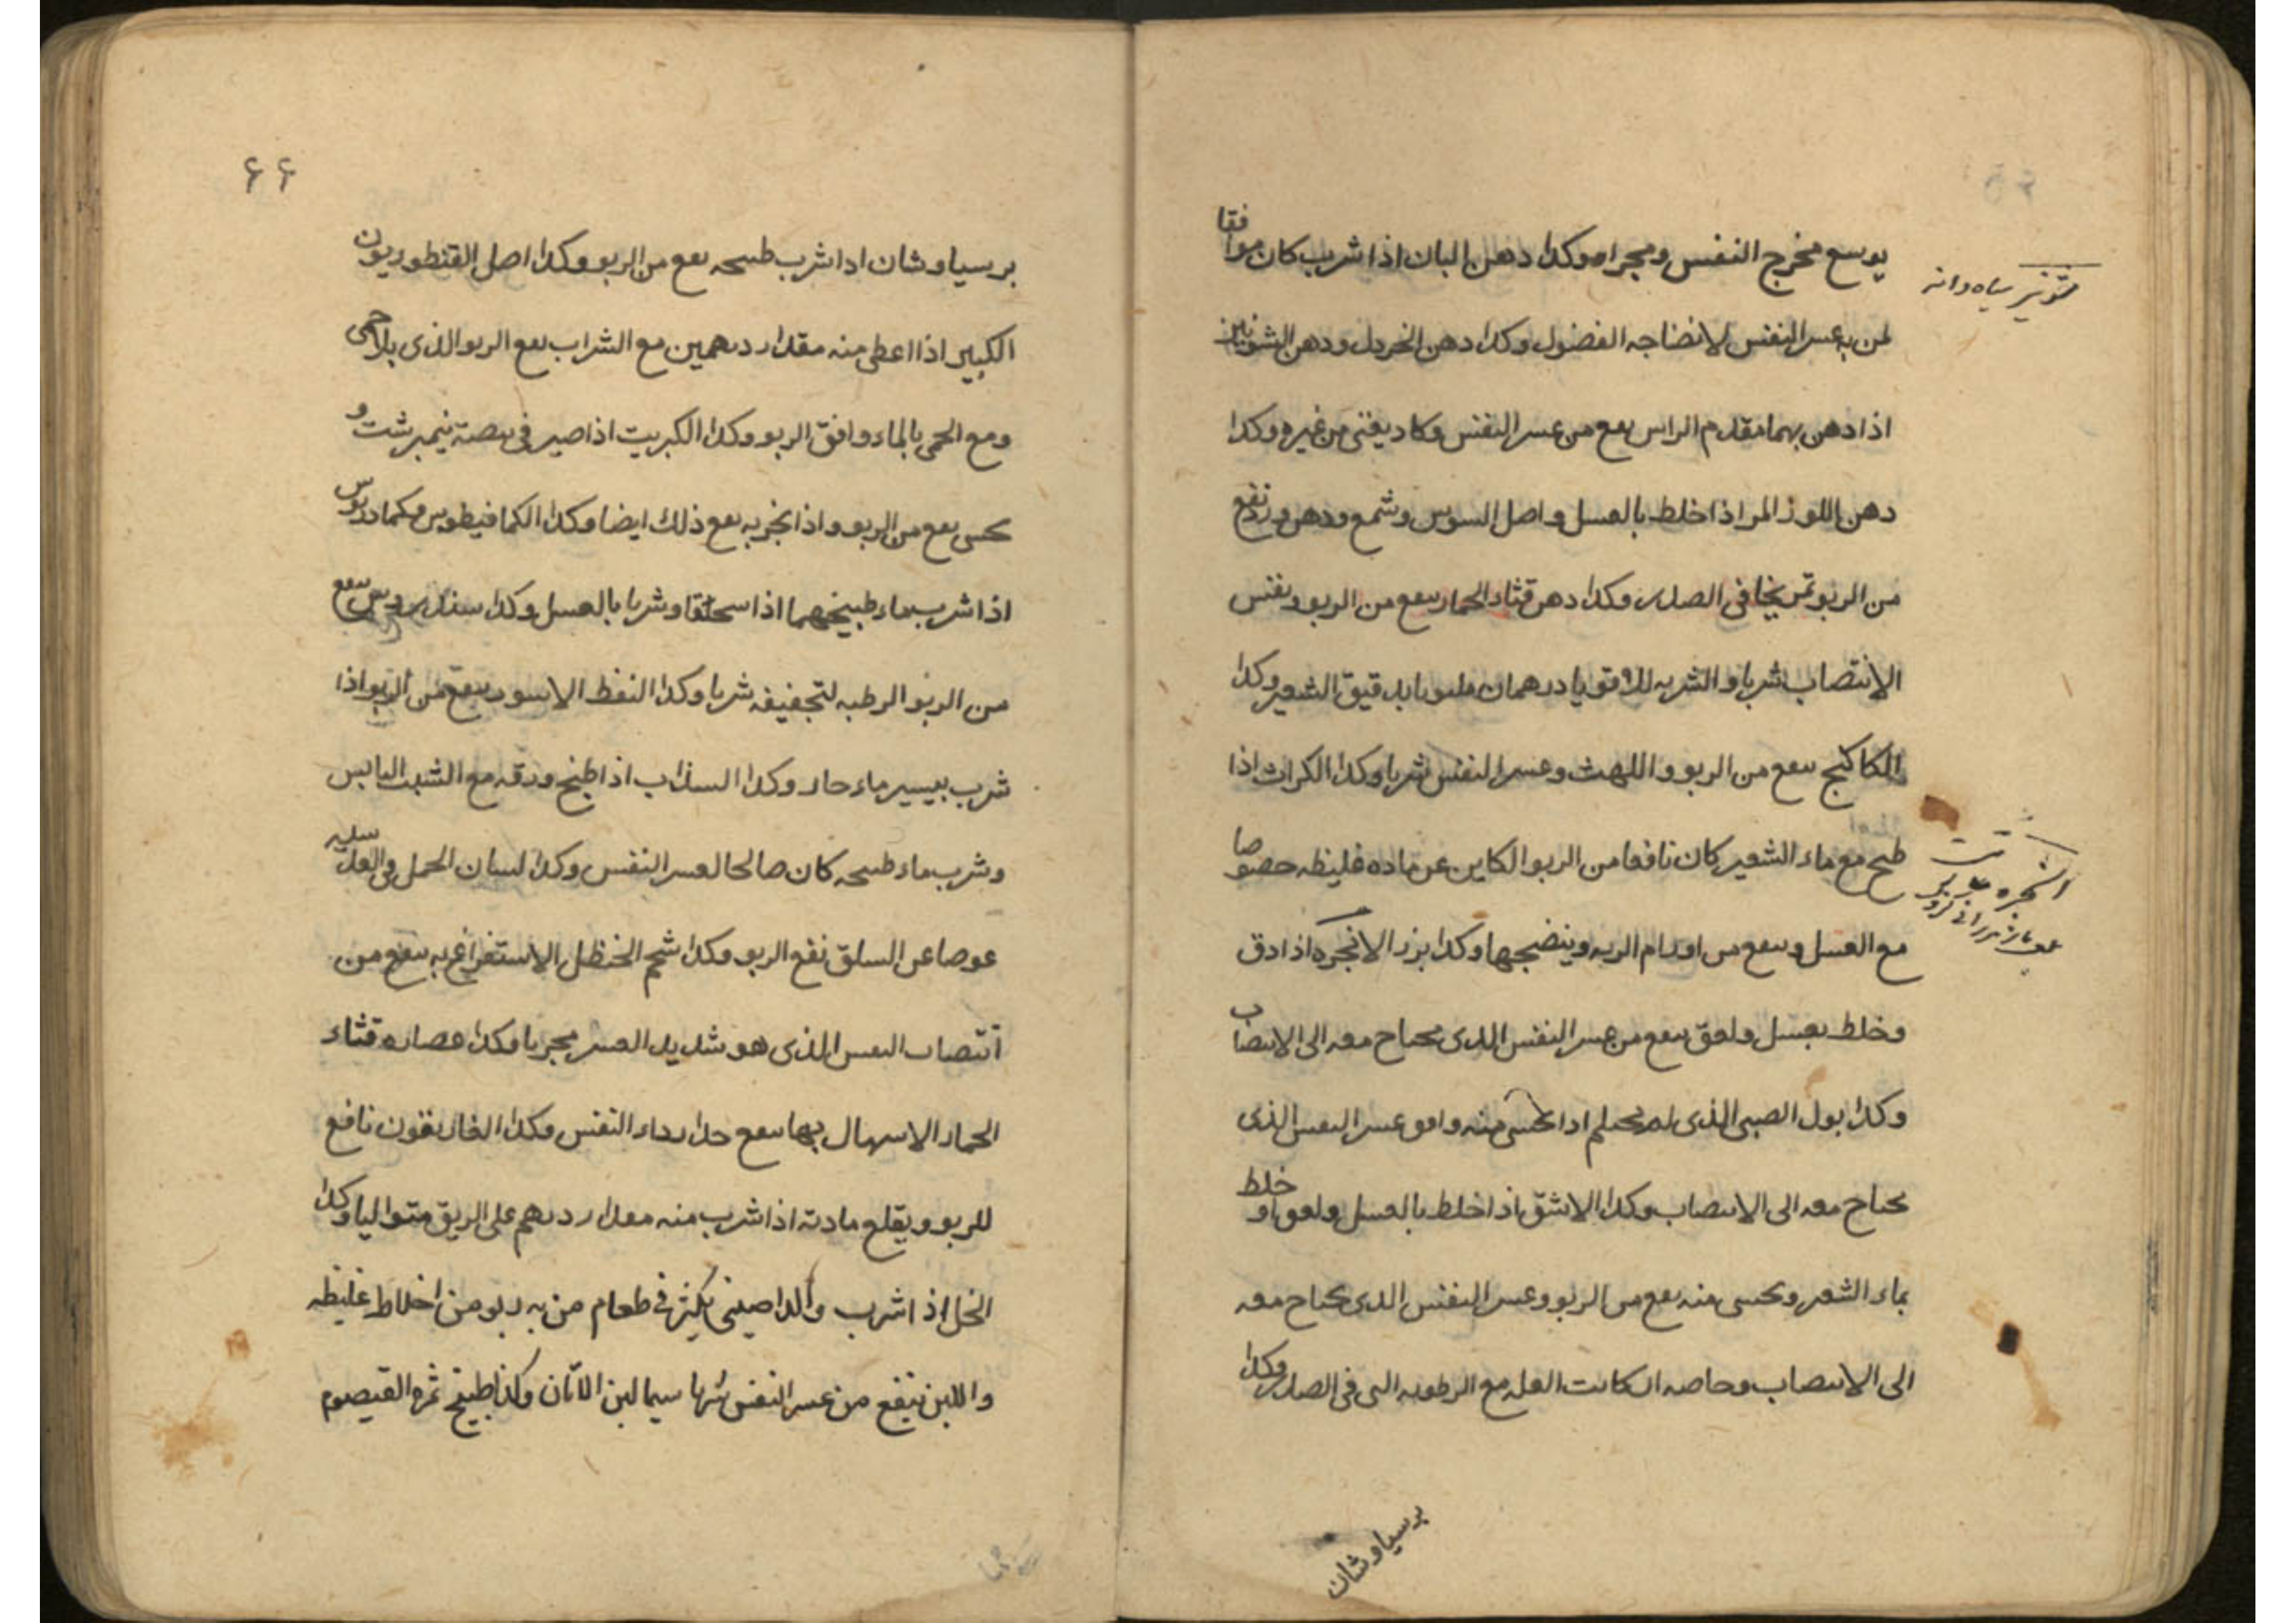 يوسع مخرج النفس ومجراه وكذا دهن البان اذا شرب كان موافقا
لمن به عسر النفس لانضاجه الفضول وكذا دهن الخردل ودهن الشونيز
اذا دهن بهما مقدم الراس نفع من عسر النفس وكاد يغنى من غيره وكذا
دهن اللوز المر اذا خلط بالعسل واصل السوس وشمع ودهن ورد نفع
من الربو تمريخا فى الصدر وكذا دهن قثاء الحمار ينفع من الربو ونفس
الانتصاب شربا والشربه للاقويا درهمان بدقيق الشعير وكذا
الكاكنج ينفع من الربو واللهث وعسر النفس شربا وكذا الكراث اذا
طبخ مع ماء الشعير كان نافعا من الربو الكاين عن ماده غليظه خصوصا
مع العسل وينفع من اورام الريه وينضجها وكذا بزر الانجره اذا دق
وخلط بعسل ولعق ينفع من عسر النفس الذى يحتاج معه الى الانتصاب
وكذا بول الصبى الذى لم يحتلم اذا تحسى منه وافق عسر النفس الذى
يحتاج معه الى الانتصاب وكذا الاشق اذا خلط بالعسل ولعق او خلط
بماء الشعير وتحسى منه نفع من الربو وعسر النفس الذى يحتاج معه
الى الانتصاب وخاصه ان كانت العله مع الرطوبه التى فى الصدر وكذا
شونيز سياه دانه
انجره
برسياوشان
۶۶
برسياوشان اذا شرب طبيخه نفع من الربو وكذا اصل القنطوريون
الكبير اذا اعطى منه مقدار درهمين مع الشراب نفع الربو الذى بلا حمى
ومع الحمى بالماء وافق الربو وكذا الكبريت اذا صير فى بيضة نيمبرشت و
تحسى نفع من الربو واذا بخر به نفع ذلك ايضا وكذا الكمافيطوس وكمادريوس
اذا شرب ماء طبيخهما اذا سحقا وشربا بالعسل وكذا سندروس ينفع
من الربو الرطبه لتجفيفه شربا وكذا النفط الاسود ينفع من الربو اذا
شرب بيسير ماء حار وكذا السذاب اذا طبخ ورقه مع الشبت اليابس
وشرب ماء طبيخه كان صالحا لعسر النفس وكذا لسان الحمل فى العدسيه
عوضا عن السلق نفع الربو وكذا شحم الحنظل الاستفراغ به ينفع من
انتصاب النفس الذى هو شديد العسر مجربا وكذا عصاره قثاء
الحمار الاسهال بها ينفع جدا رداء النفس وكذا الغاريقون نافع
للربو ويقلع مادته اذا شرب منه مقدار درهم على الريق متواليا وكذا
الخل اذا شرب والدارصينى يكثر فى طعام من به ربو من اخلاط غليظه
واللبن ينفع من عسر النفس شربا سيما لبن الاتان وكذا طبيخ ثمره القيصوم